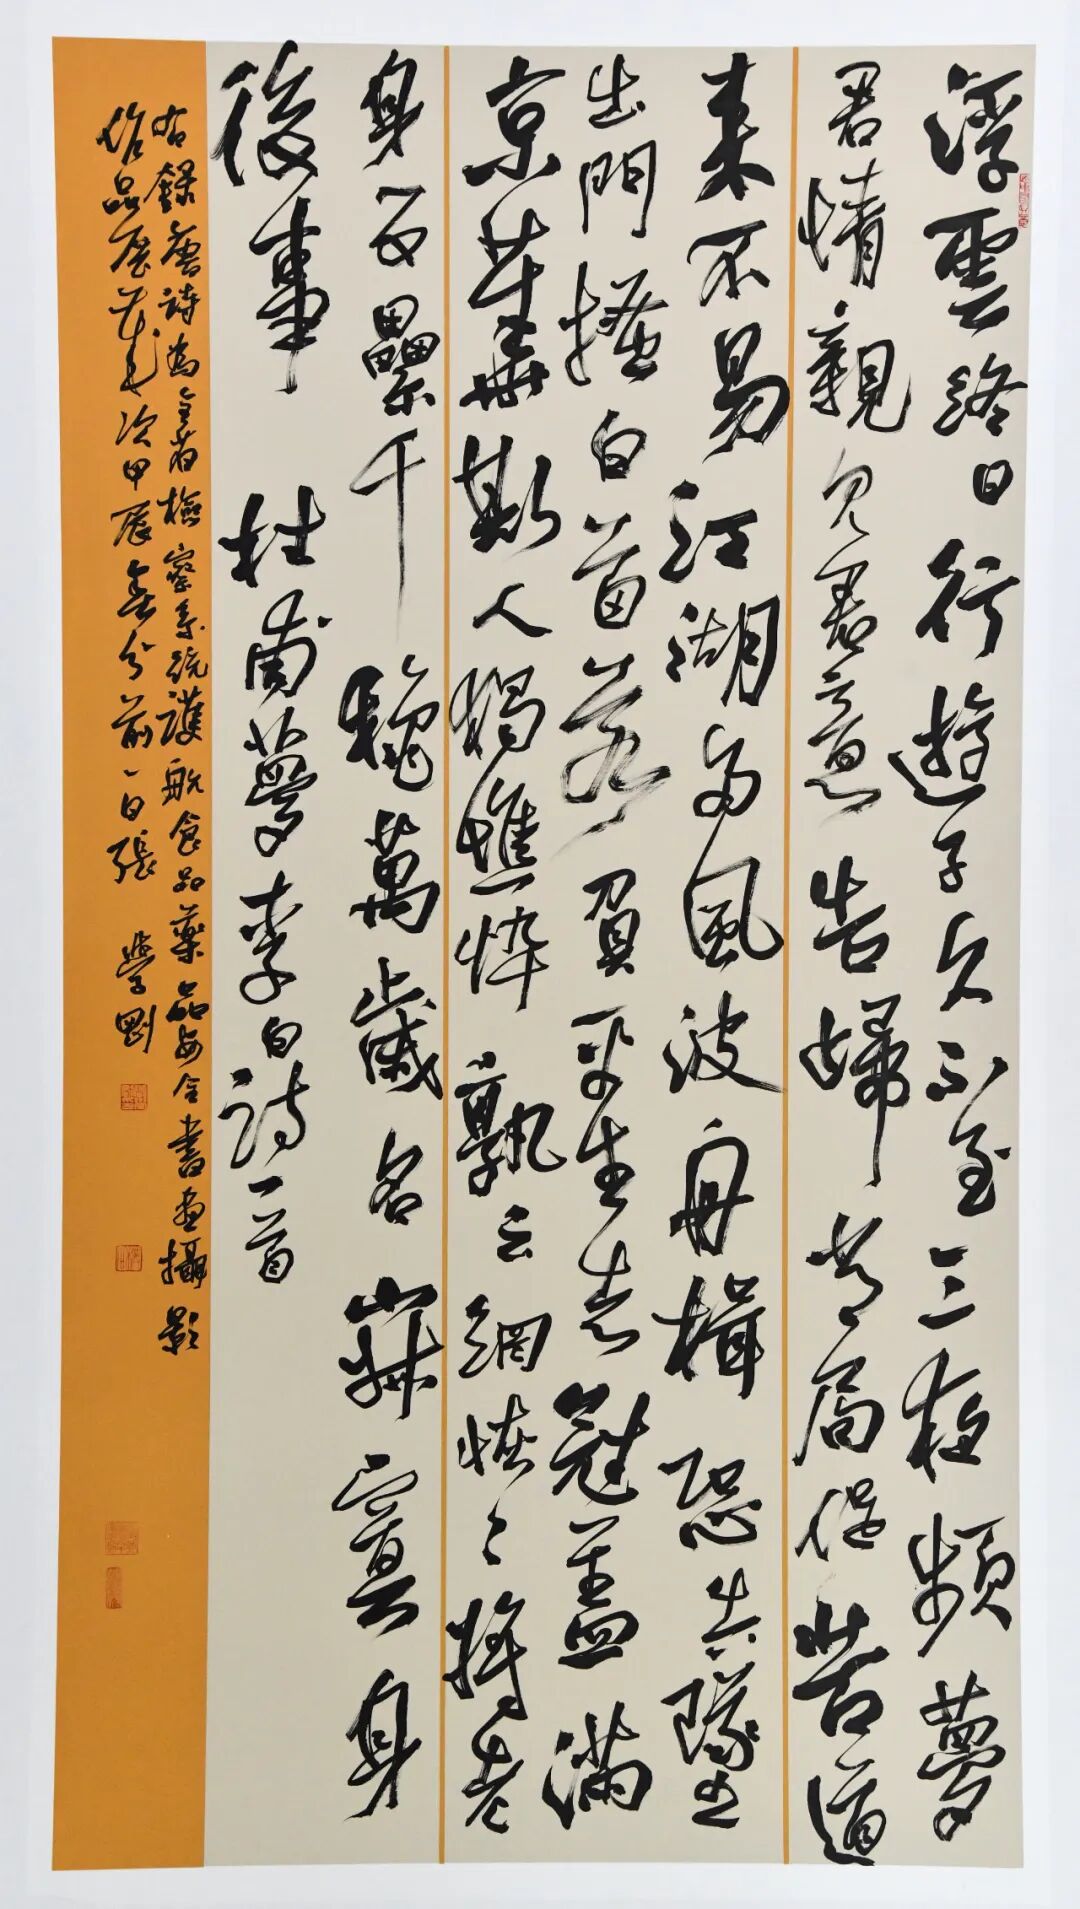 浮雲終日行遊子久不至三夜頻夢
君情親見君意告歸常局促苦道
來不易江湖多風波舟楫恐失墜
出門搔白首若負平生志冠蓋滿
京華斯人獨憔悴孰云網恢〻將老
身反纍千穐萬歲名寂寞身
後事 杜甫夢李白詩一首
右錄唐詩為全省檢察系統護航食品藥品安全書畫攝影
作品展歲次甲辰春分前一日張學剛